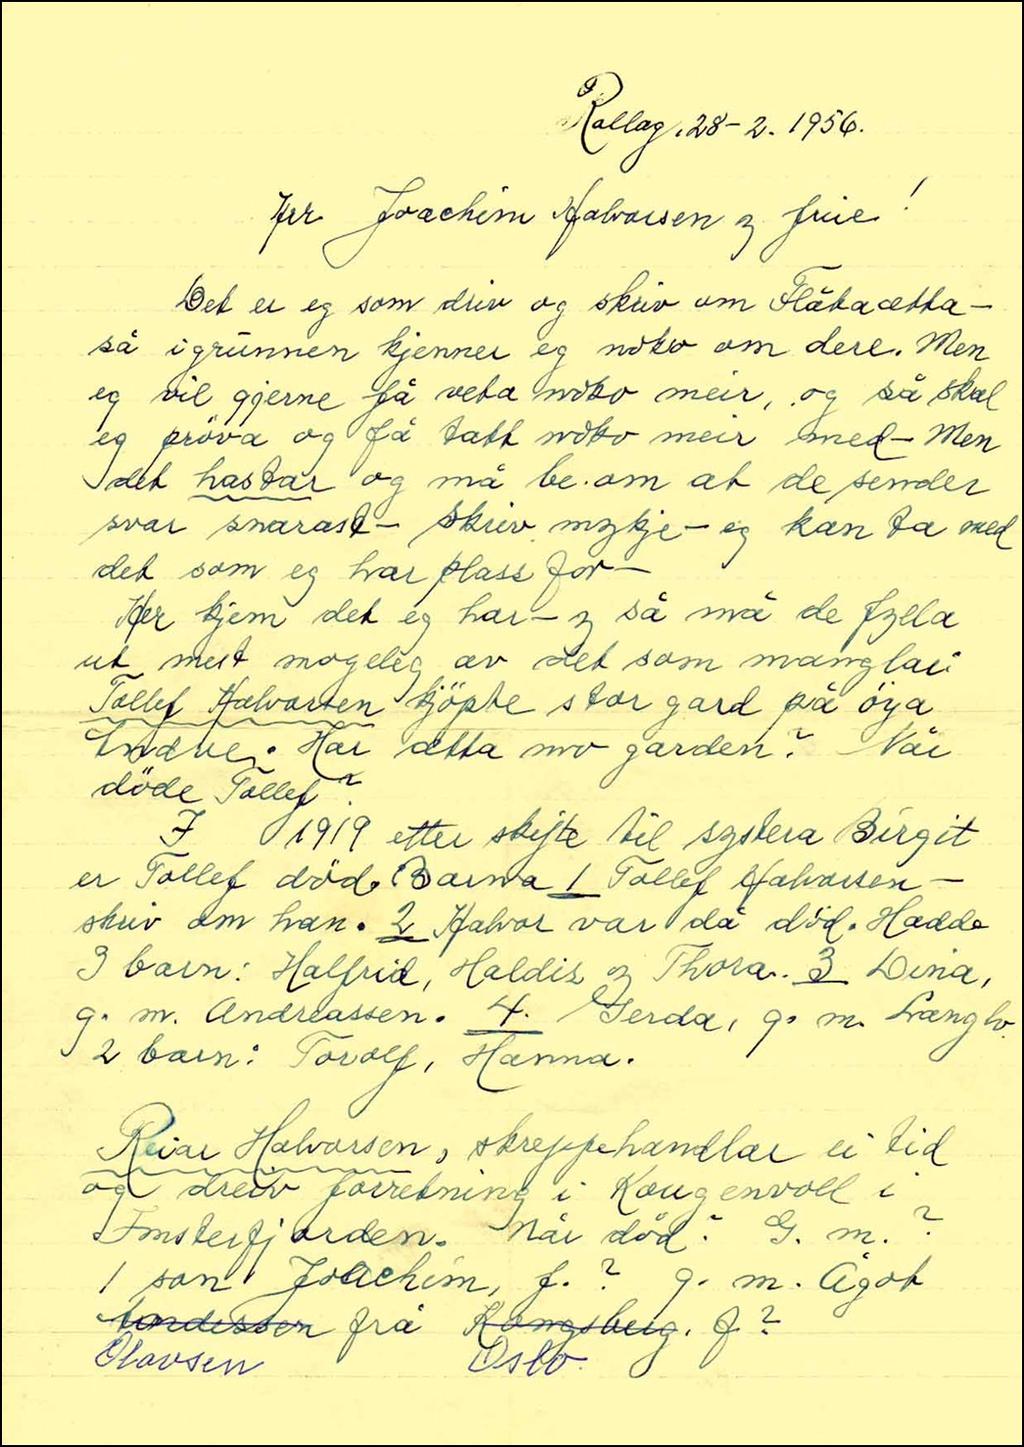 Rollag, 28-2. 1956.
Hr Joachim Halvorsen og frue!
Det er eg som driv og skriv om Flåtaætta-
så i grunnen kjenner eg noko om dere. Men
eg vil gjerne få veta noko meir, og så skal
eg pröva og få tatt noko meir med- Men
det hastar og må be om at de sender
svar snarast- Skriv mykje- eg kan ta med
det som eg har plass for-
Her kjem det eg har- og så må de fylla
ut mest mogeleg av det som manglar:
Tollef Halvorsen kjöpte stor gard på öya
Andre. Har ætta no garden? Når
döde Tollef?
I 1919 etter skifte til systera Birgit
er Tollef död. Barna 1 Tollef Halvorsen-
skriv om han. 2 Halvor var da död. Hadde
3 barn: Halfrid, Haldis og Thora. 3 Dina,
g. m. Andreassen. 4. Gerda, g. m. Langlo.
2 barn: Torolf, Hanna.
Reiar Halvorsen, skreppehandlar ei tid
og dreiv forretning i Kougenvoll i
Imsterfjorden. Når död? G. m.?
1 son Joachim, f.? g. m. Ågot
Andersen frå Kongsberg. f?
Olavsen Oslo.